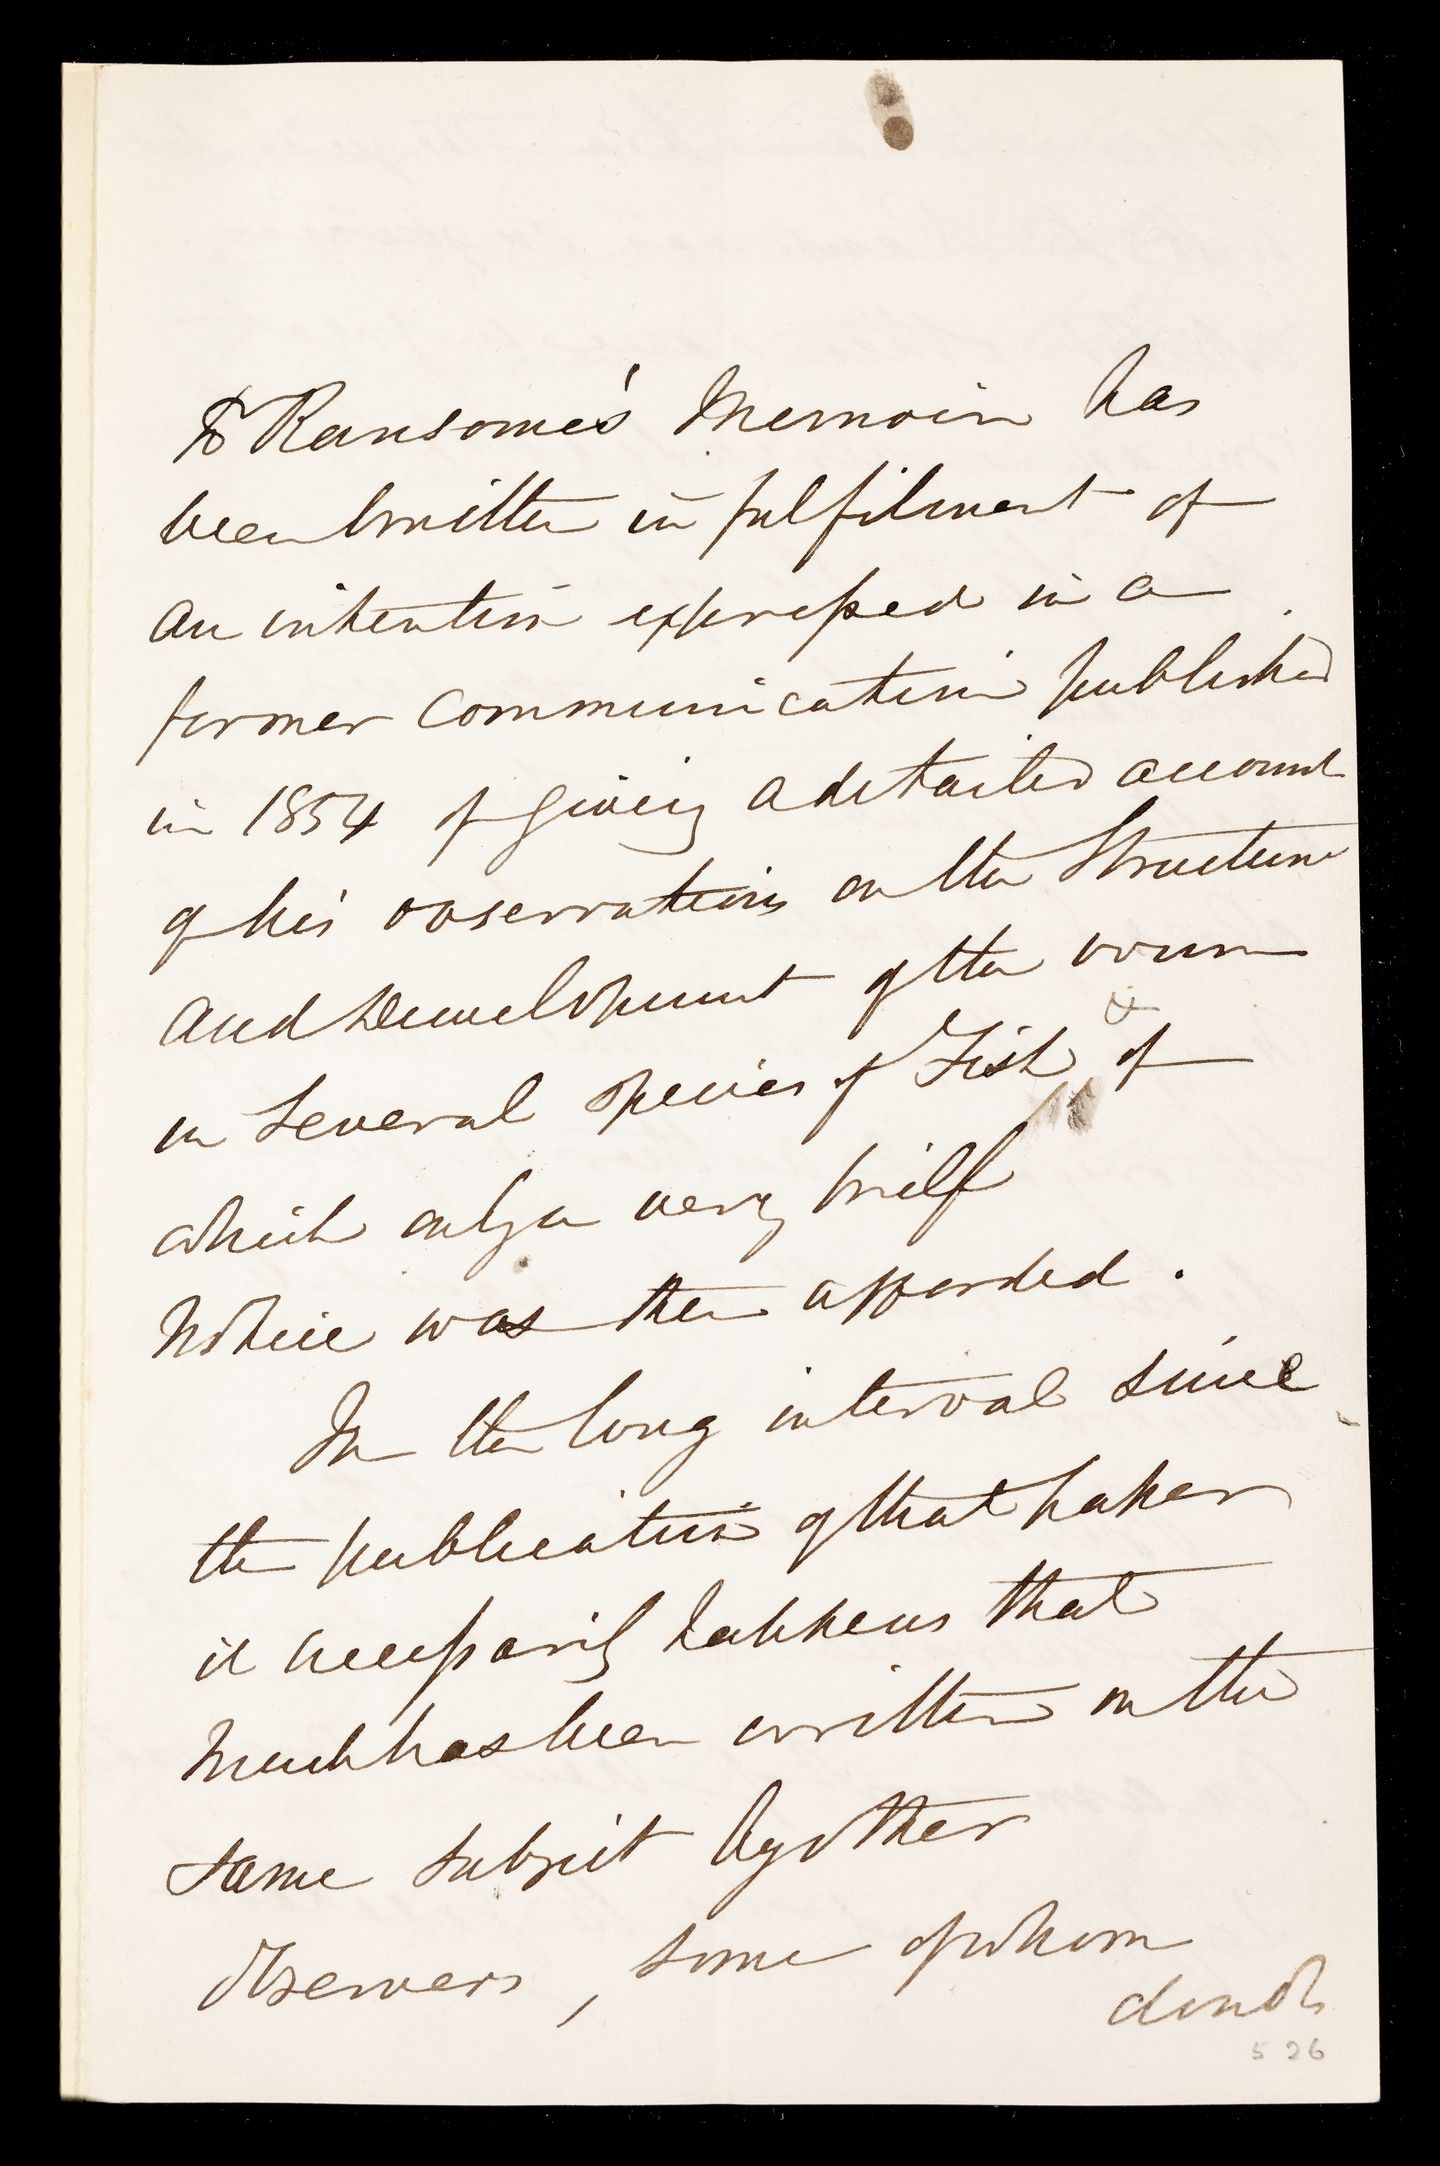 Dr Ransome's Memoir has
been written in fulfilment of
an intention expressed in a
former communication published
in 1854 of giving a detailed account
of his observations on the Structure
and Development of the ovum
in several species of Fish & of
which only a very brief
Notice was then afforded.
In the long interval since
the publication of that paper
it necessarily happens that
Much has been written on the
same subject by other
observers, some of whom
do not
526